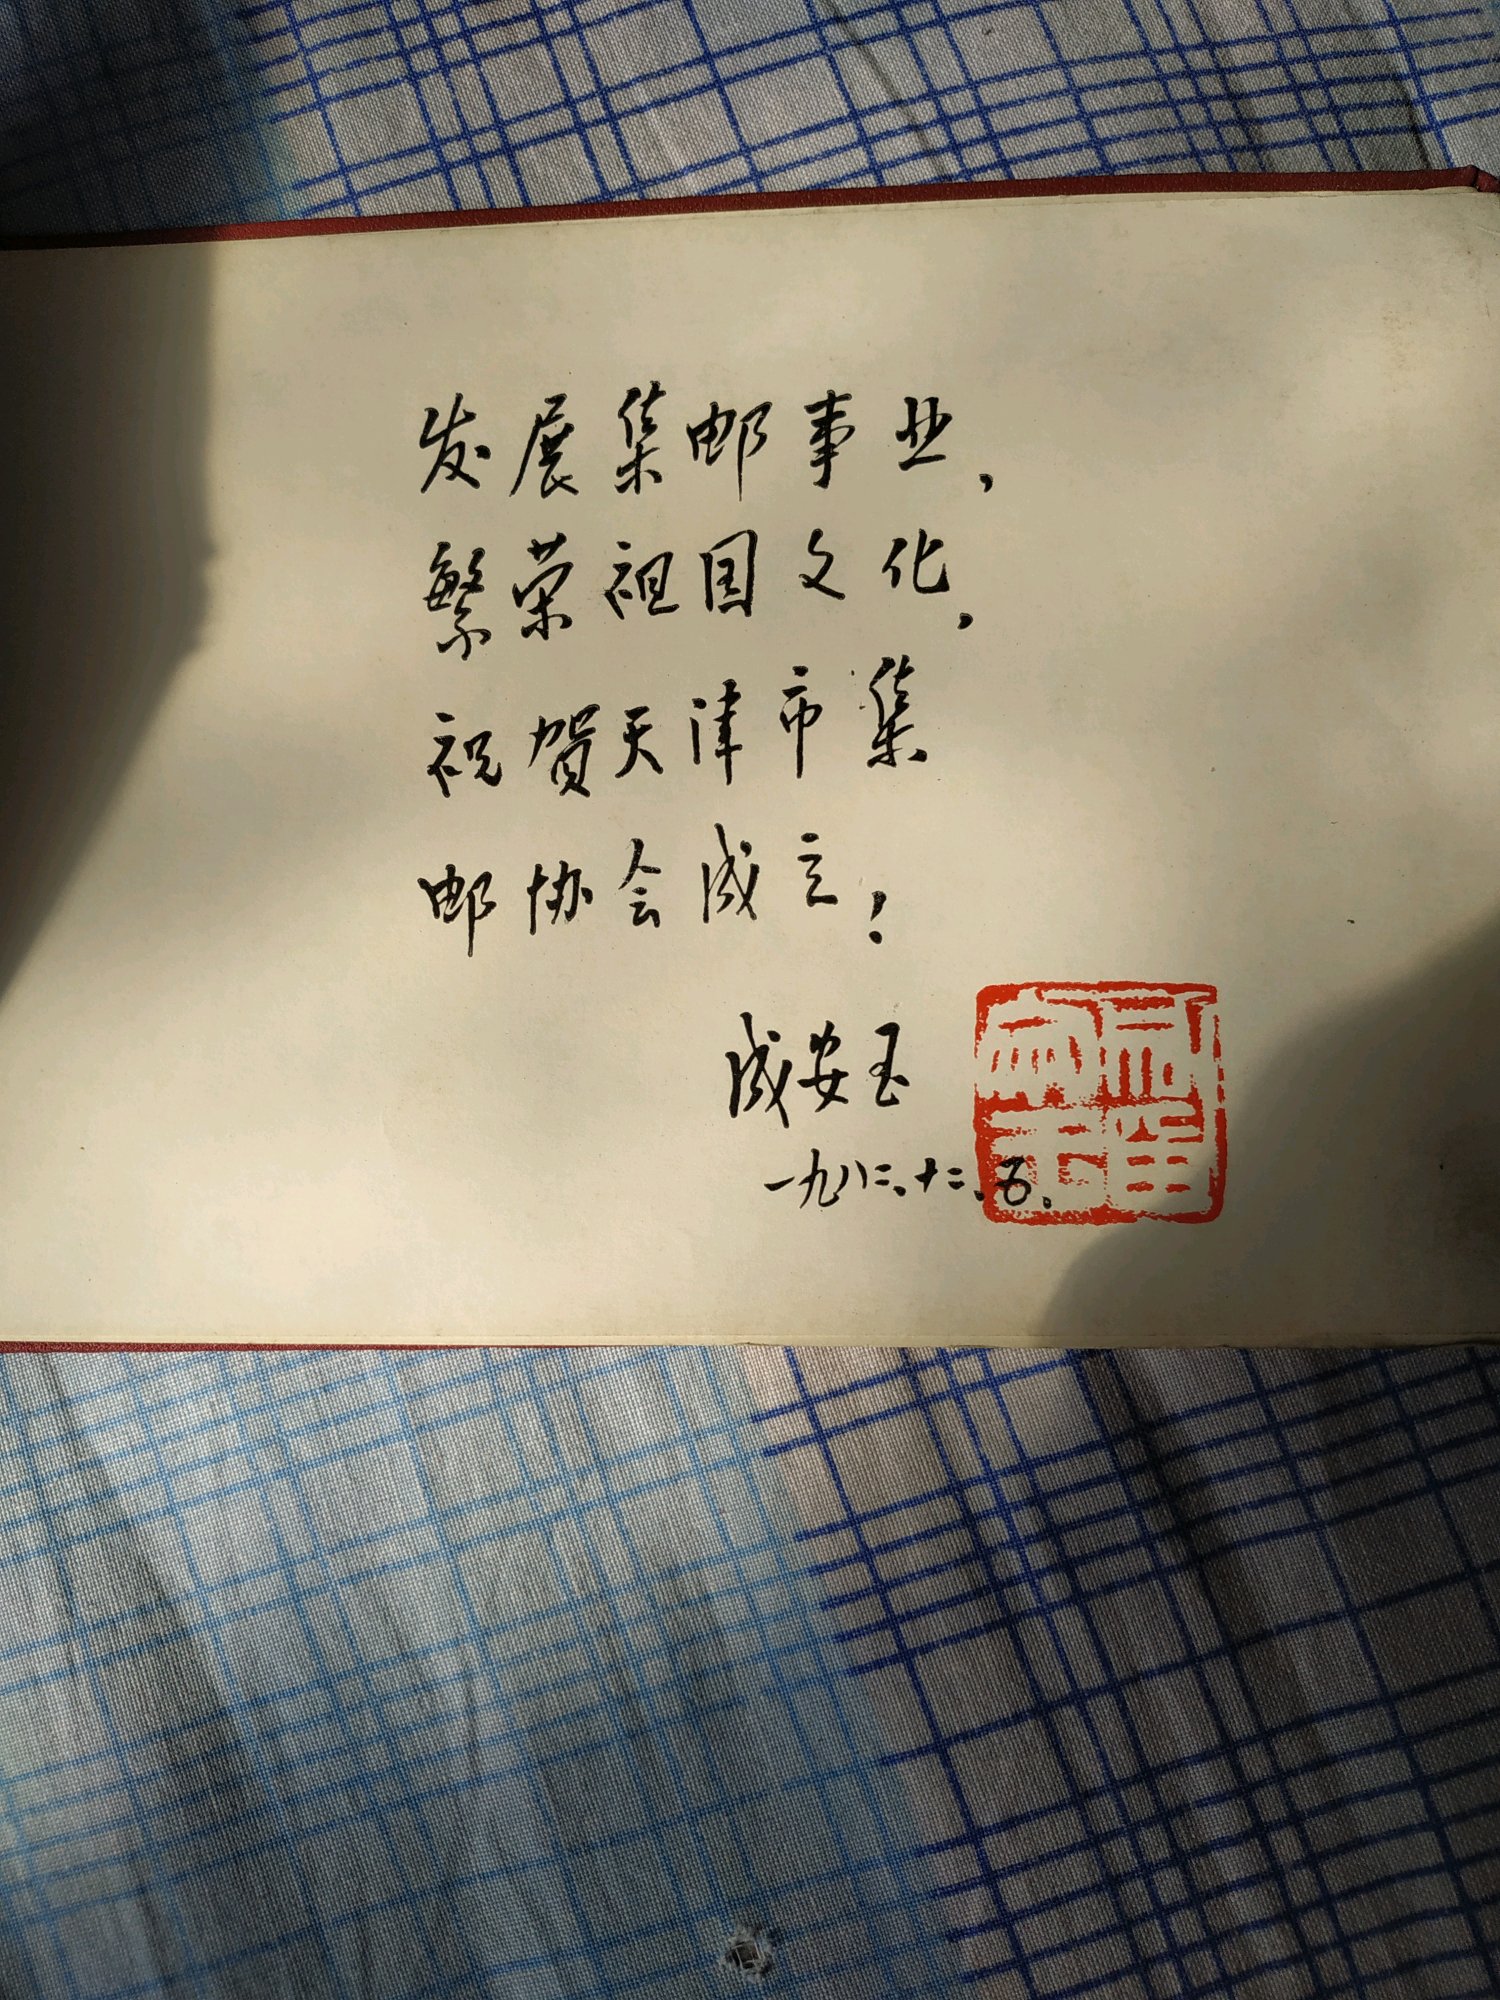 发展集邮事业,
繁荣祖国文化,
祝贺天津市集
邮协会成立!
成安玉
一九八二、十二、五.